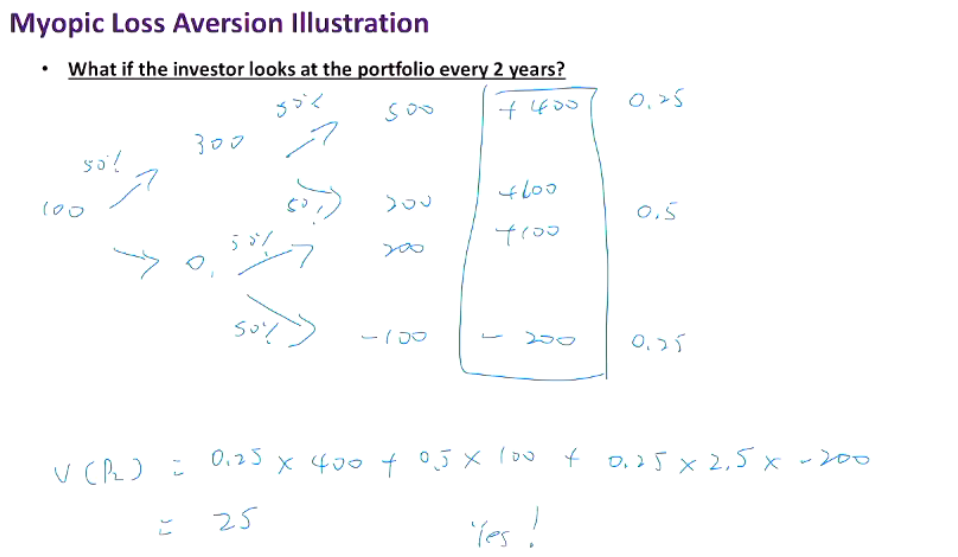 Myopic Loss Aversion Illustration
• What if the investor looks at the portfolio every 2 years?
50% 500 +400 0.25
300
50%
100 50% 200 +100 0.5
50% 200 +100
0.
50% -100 - 200 0.25
V(P2) = 0.25 x 400 + 0.5 x 100 + 0.25 x 2.5 x -200
= 25 Yes!